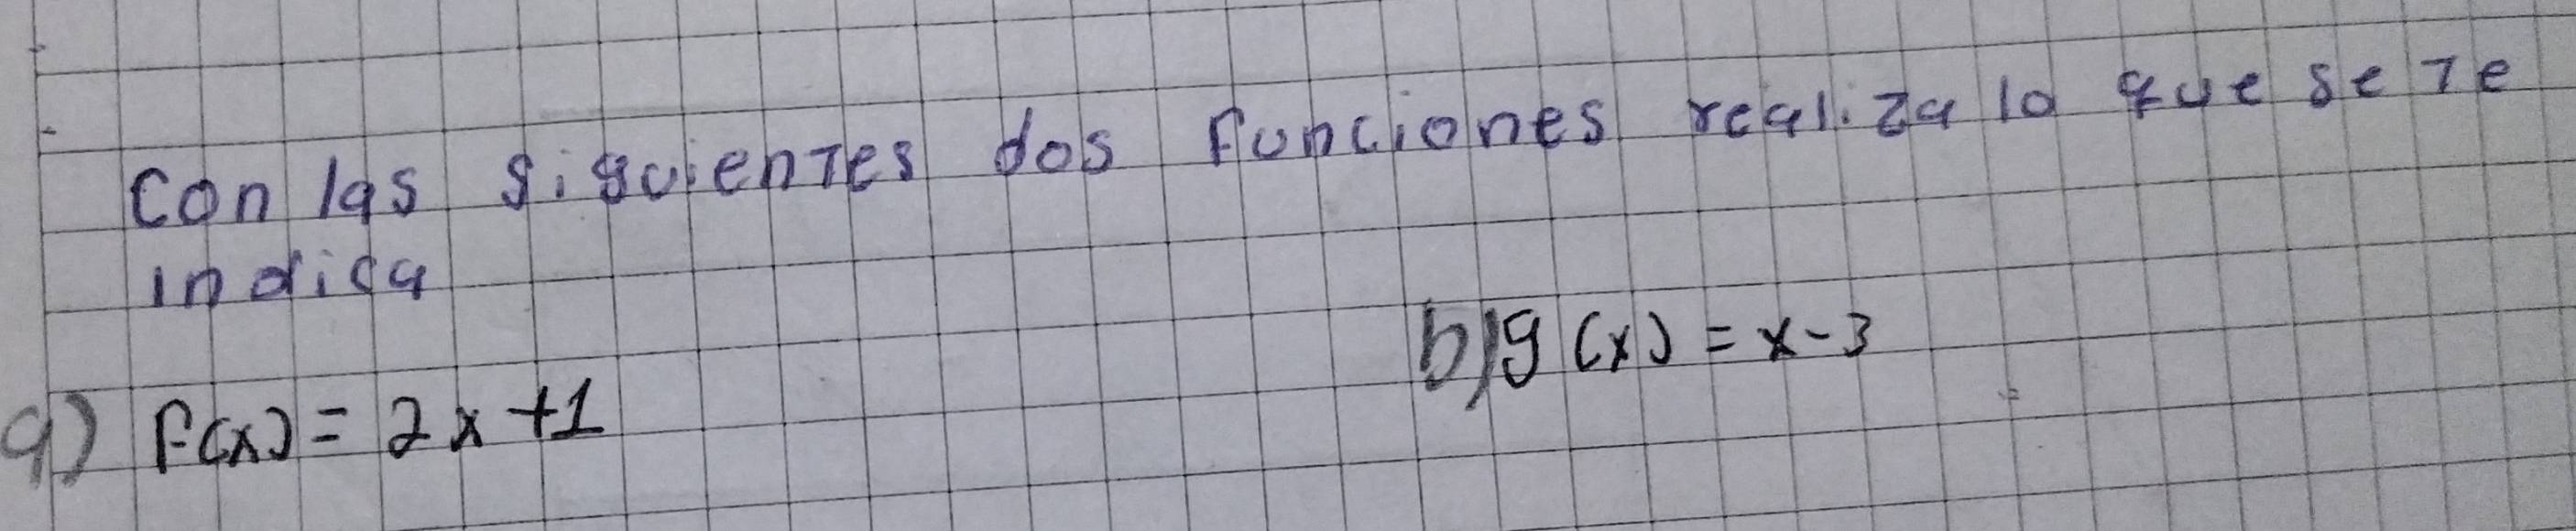 Con las siguientes dos funciones realiza lo que se te
indica
a) f(x) = 2x+1
b) g(x) = x-3